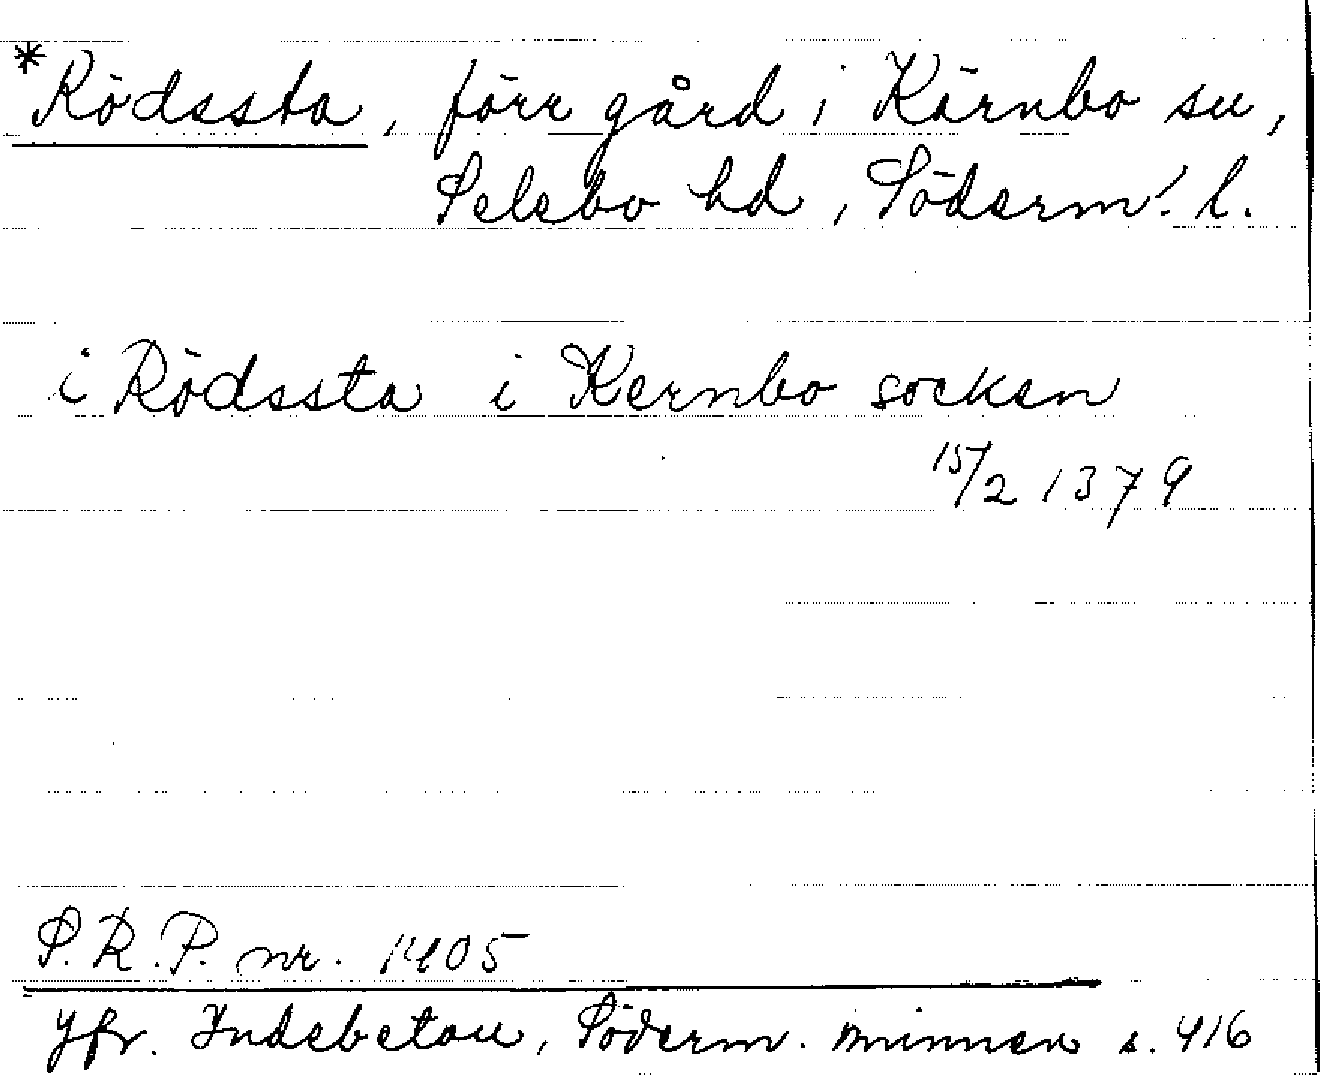 *Rödssta, förr gård i Kärnbo sn,
Selebo hd, Söderm. l.
i Rödssta i Kernbo socken
15/2 1379
S.R.P. nr. 1405
Jfr. Indebetou, Söderm. minnen s. 416